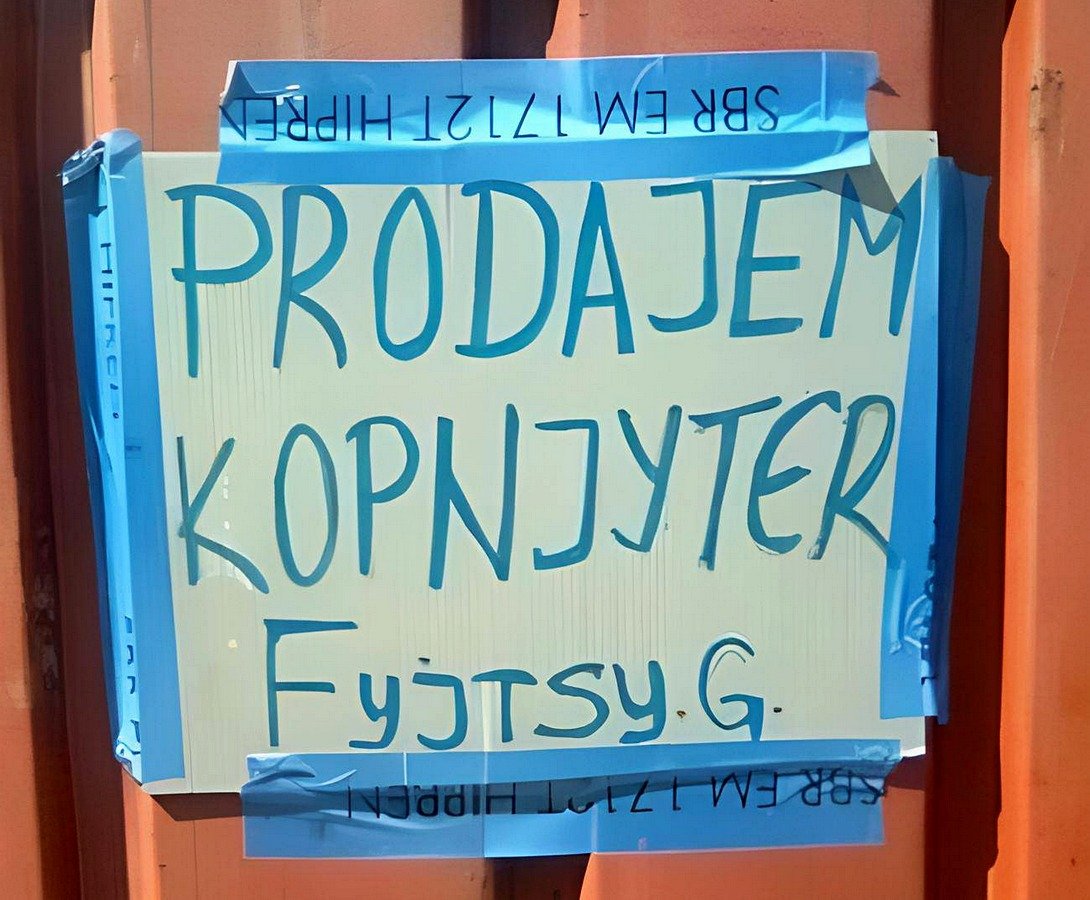 SBR EM 1712T HIPREN
PRODAJEM
KOPNJYTER
FyjTSy.G.
SBR EM 1712T HIPREN